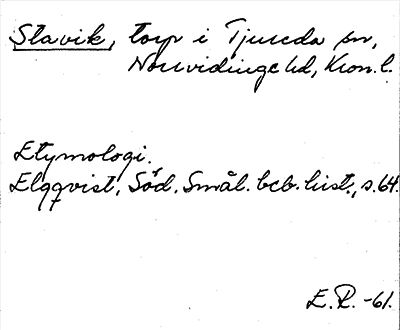 Stavik, torp i Tjureda sn,
Norrvidinge hd, Kron. l.
Etymologi.
Elqqvist, Söd. Smål. beb. hist., s. 64.
E. R. -61.